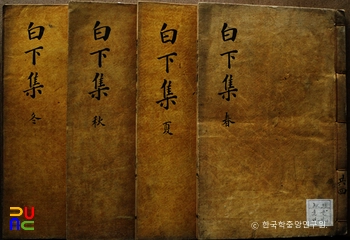 白下集 春
白下集 夏
白下集 秋
白下集 冬
PUAC
© 한국학중앙연구원